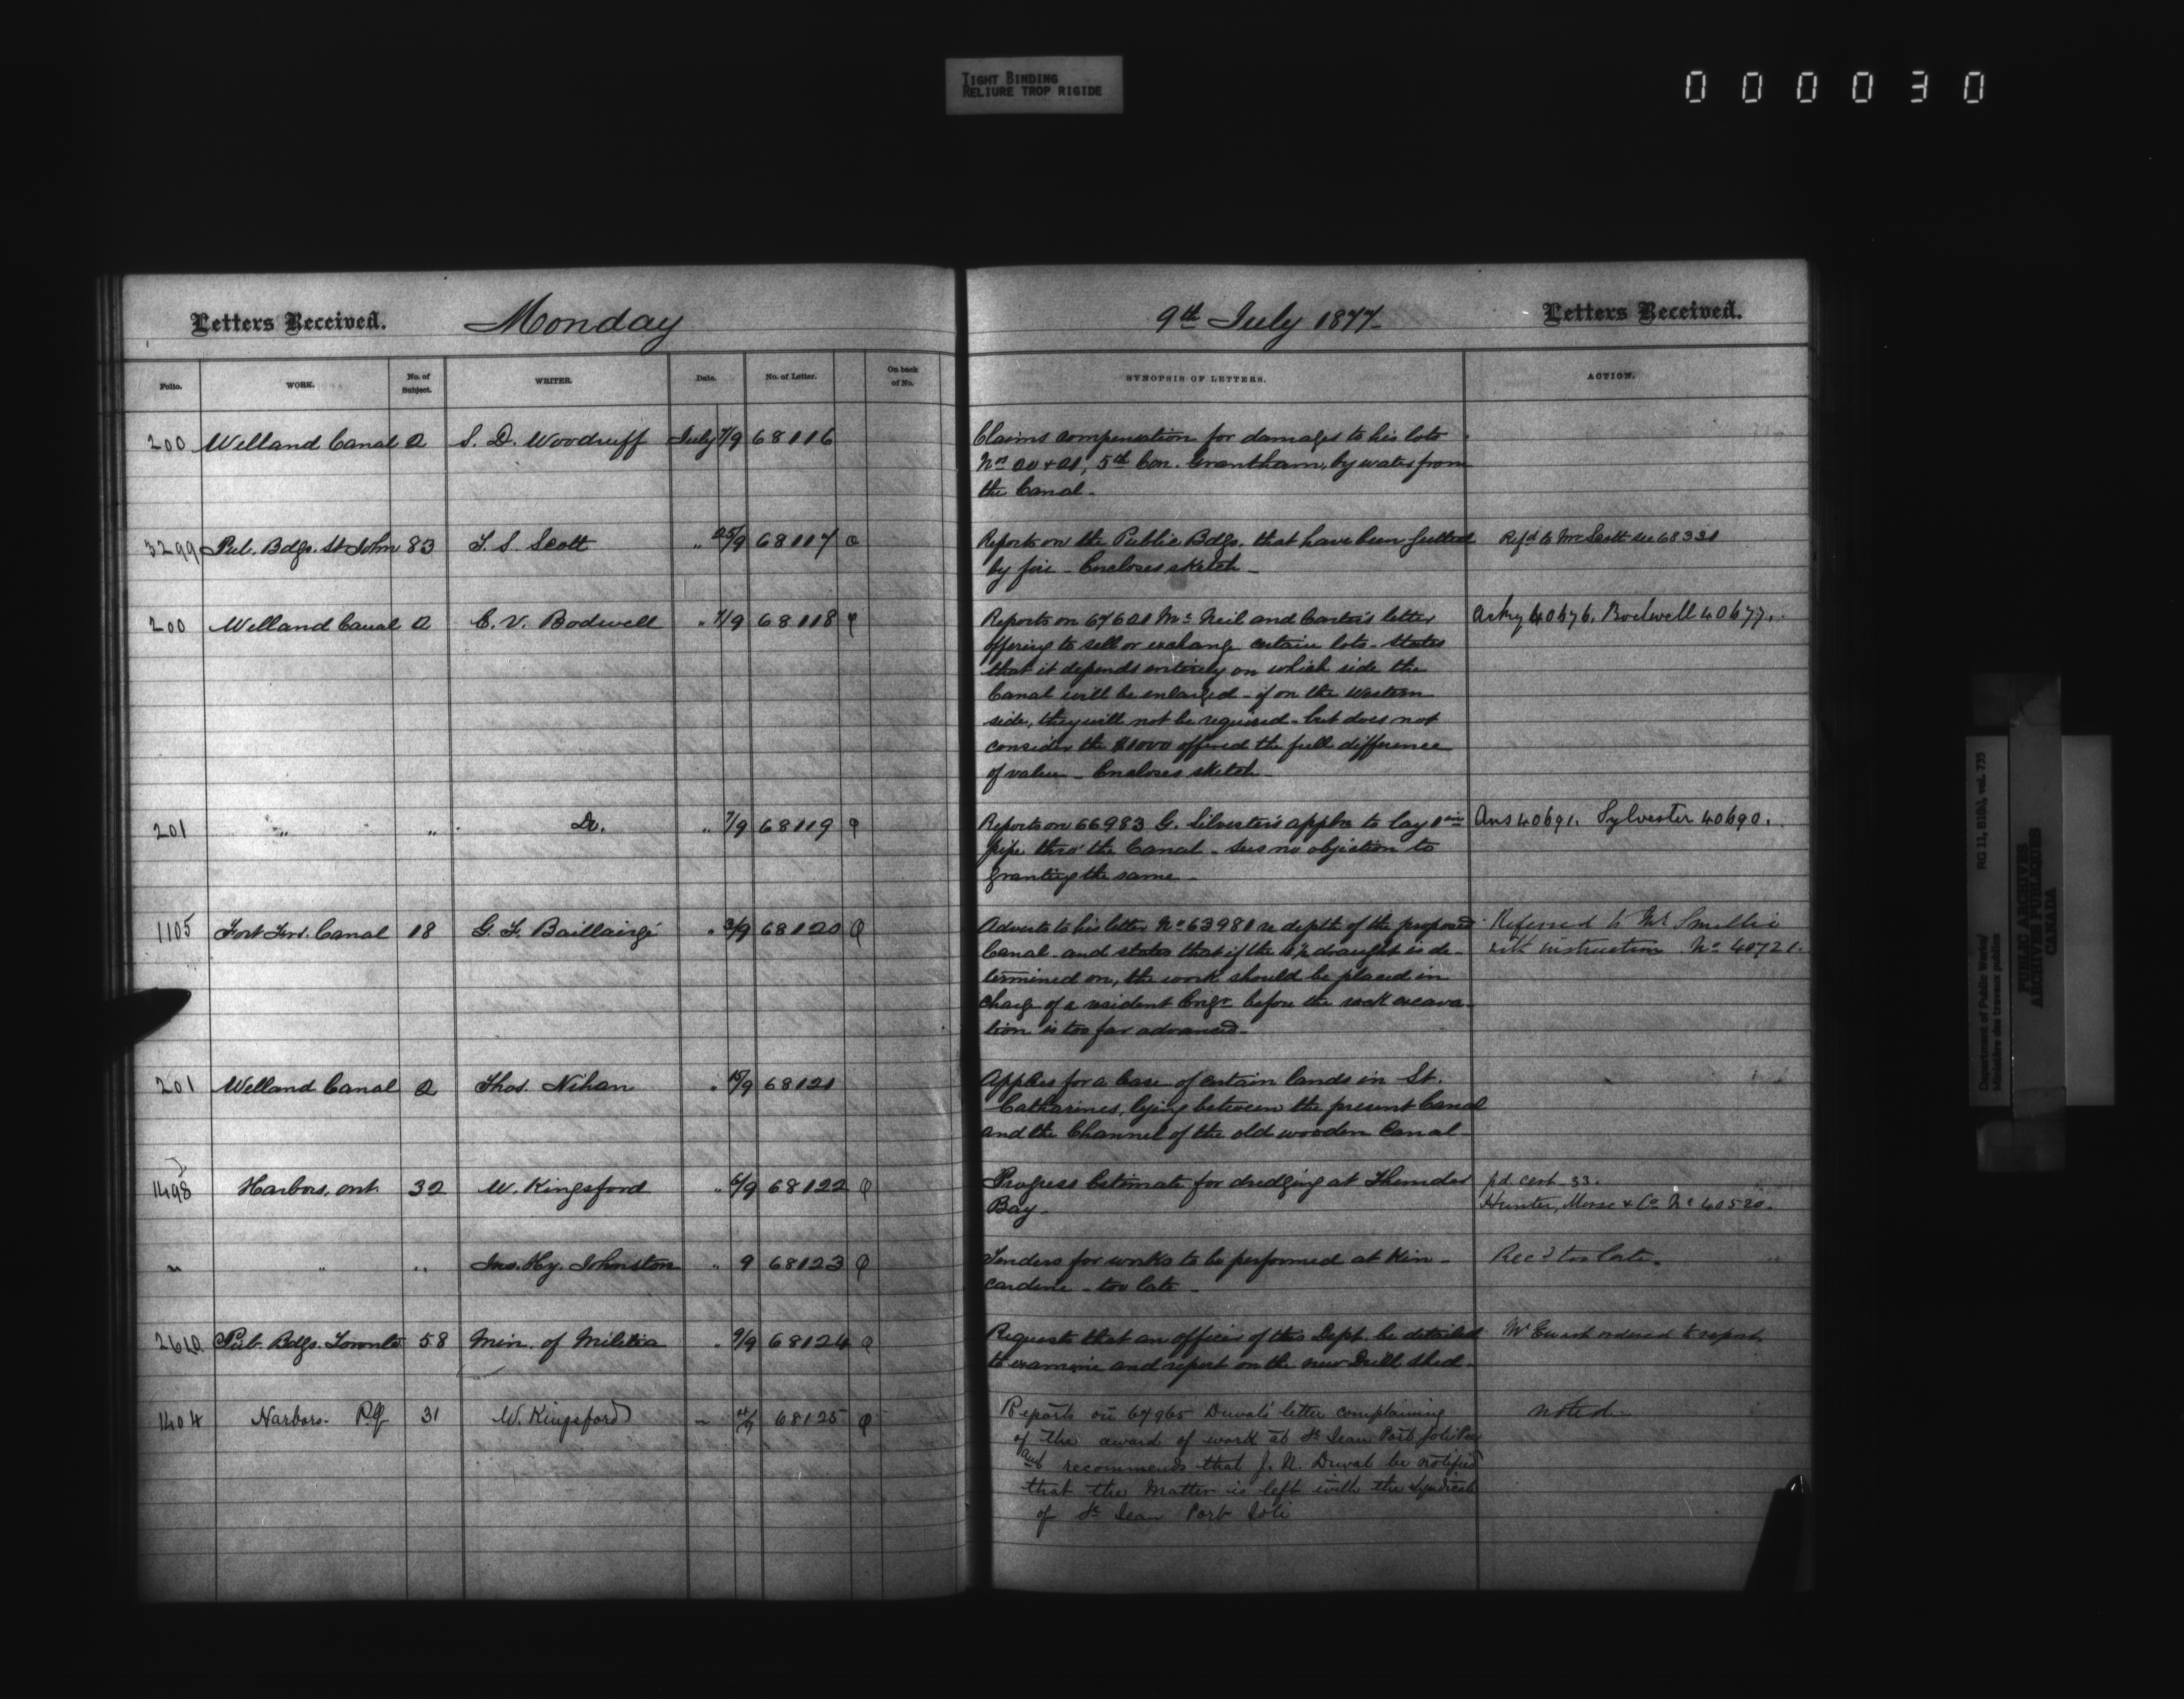 TIGHT BINDING
RELIURE TROP RIGIDE
000030
Letters Received. Monday
9th July 1877
Letters Received.
Folio. WORK. No. of Subject. WRITER. Date. No. of Letter. On back of No.
SYNOPSIS OF LETTERS. ACTION.
200 Welland Canal 2 S. D. Woodruff July 7/9 68116
Claims compensation for damages to his lots
Nos 20 + 21, 5th Con. Grantham, by water from
the Canal.
3299 Pub. Bdgs. St John 83 T. S. Scott " 25/9 68117
Reports on the Public Bdgs. that have been gutted Refd to Mr Scott see 68331
by fire - Encloses sketch -
200 Welland Canal 2 C. V. Bodwell " 7/9 68118
Reports on 67621 McNeil and Carter's letter 40676. Bodwell 40677.
offering to sell or exchange certain lots - States
that it depends entirely on which side the
Canal will be enlarged - if on the western
side, they will not be required - but does not
consider the $1000 offered the full difference
of value - Encloses sketch -
201 " " Do. " 7/9 68119
Reports on 66983 G. Silvester's appln to lay 1 in Ans 40691. Sylvester 40690.
pipe thro' the Canal - Sees no objection to
granting the same -
1105 Fort Frs. Canal 18 G. F. Baillairgé " 3/9 68120
Adverts to his letter No 63981 re depth of the proposed Referred to Mr Smellie
Canal - and states that if the draught is de- with instruction No 40721.
termined on, the work should be placed in
charge of a resident Engr before the rock excava-
tion is too far advanced -
201 Welland Canal 2 Thos. Nihan " 68121
Applies for a lease of certain lands in St.
Catharines, lying between the present Canal
and the Channel of the old wooden Canal -
1498 Harbors, Ont. 32 W. Kingsford " 6/9 68122
Progress Estimate for dredging at Thunder pd. cert. 33.
Bay - Hunter, Morse & Co. No 40520.
" " " Jno. Hy. Johnston " 9 68123
Tenders for works to be performed at Kin- Recd too late.
cardine - too late -
2610 Pub. Bdgs. Toronto 58 Min. of Militia " 9/9 68124
Requests that an officer of this Dept. be detailed Mr Ewart ordered to report.
to examine and report on the new Drill Shed -
1404 Harbors - P.Q 31 W. Kingsford " 68125
Reports on 67965 Duval's letter complaining noted
of the award of work at St Jean Port Joli Pier
and recommends that J. N. Duval be notified
that the matter is left with the Syndicate
of St Jean Port Joli
Department of Public Works/
Ministère des travaux publics
RG 11, B1(b), vol. 735
PUBLIC ARCHIVES
ARCHIVES PUBLIQUES
CANADA